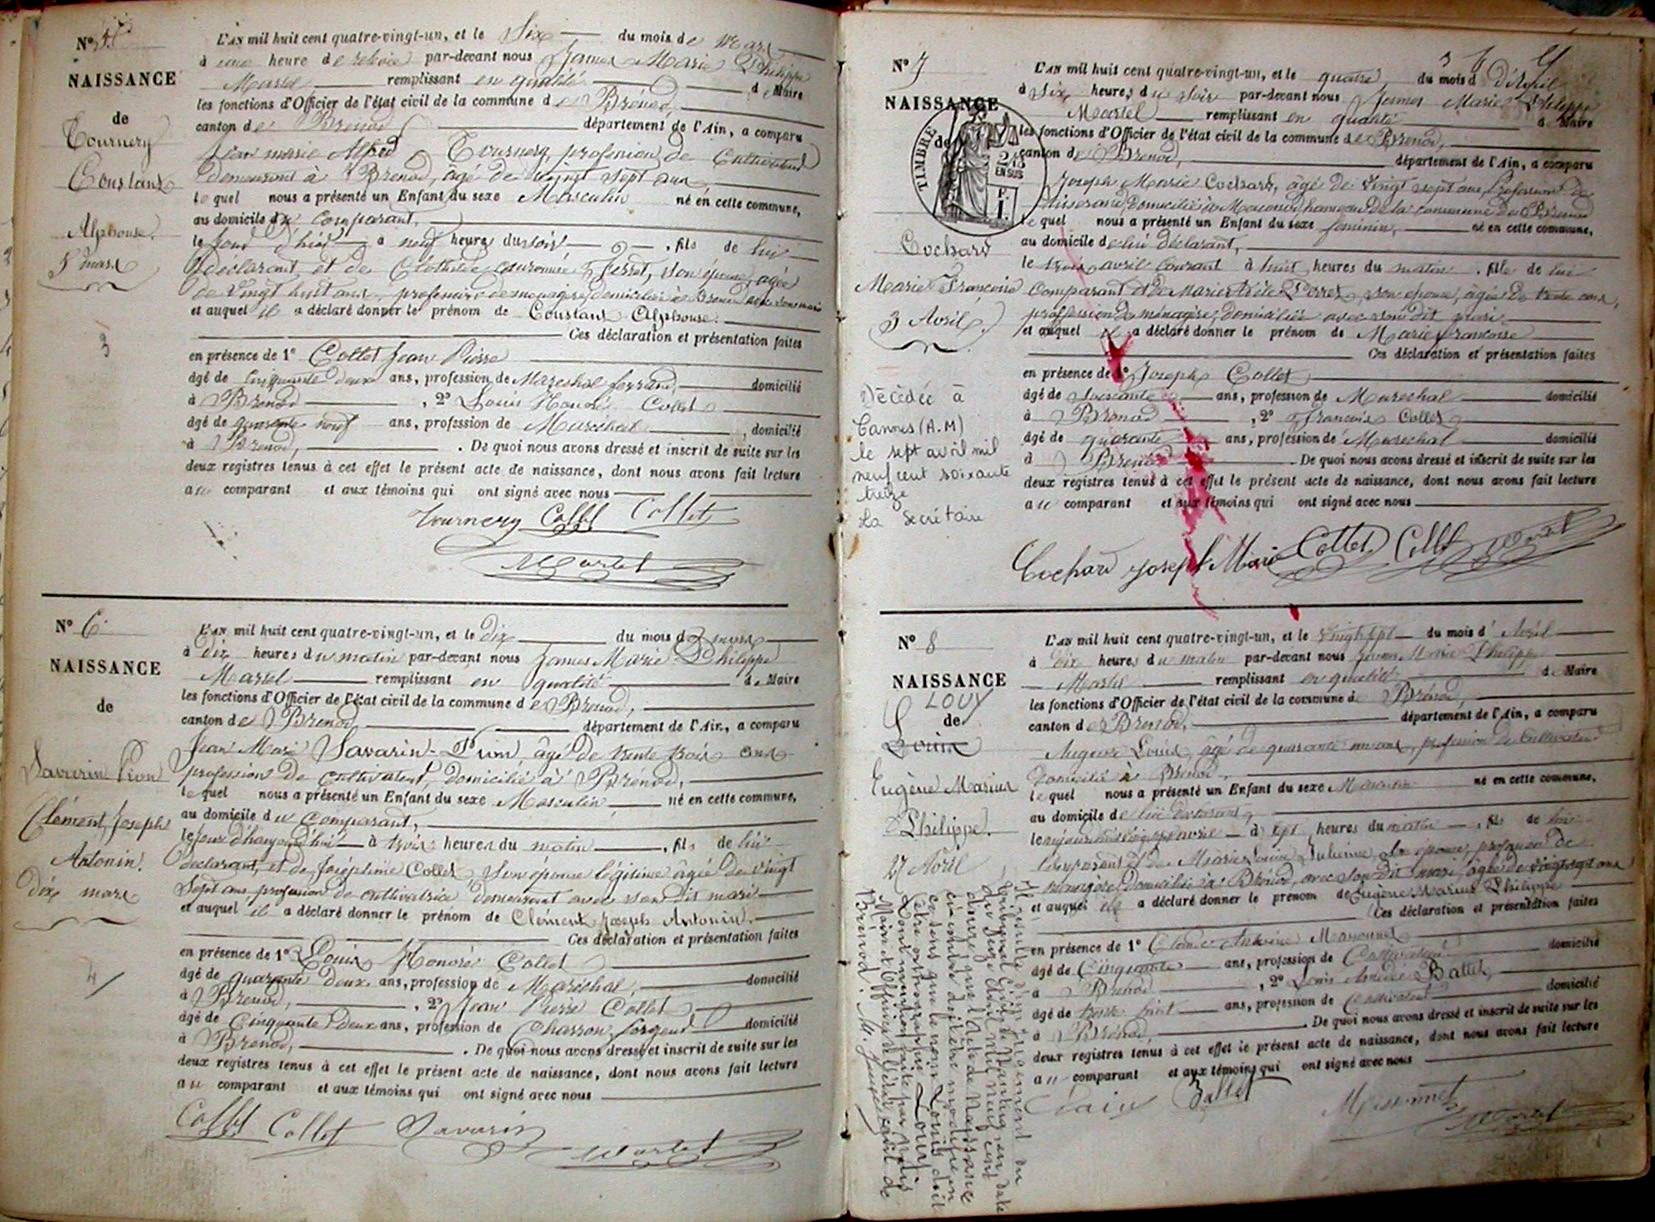 N° 5
NAISSANCE
de
Tournery
Constant
Alphonse
5 mars
3
L'AN mil huit cent quatre-vingt-un, et le Six du mois de mars
à une heure de relevée par-devant nous James Marie Philippe
Martel remplissant en qualité de Maire
les fonctions d'Officier de l'état civil de la commune de Brénod
canton de Brenod département de l'Ain, a comparu
Jean marie Alfred Tournery, profession de Cultivateur
demeurant à Brenod, âgé de vingt sept ans
lequel nous a présenté un Enfant du sexe Masculin né en cette commune,
au domicile du comparant,
le jour d'hier à neuf heures du soir, fils de lui
déclarant, et de Clothilde Perret, son épouse, agée
de vingt huit ans, profession de menagère, domiciliée à Brenod avec son mari
et auquel il a déclaré donner le prénom de Constant Alphonse.
Ces déclaration et présentation faites
en présence de 1° Collet Jean Pierre
âgé de cinquante deux ans, profession de Marechal ferrand domicilié
à Brenod, 2° Louis Honoré Collet
âgé de quarante neuf ans, profession de Marechal, domicilié
à Brenod, De quoi nous avons dressé et inscrit de suite sur les
deux registres tenus à cet effet le présent acte de naissance, dont nous avons fait lecture
au comparant et aux témoins qui ont signé avec nous
Tournery Collet Collet
Martel
N° 6
NAISSANCE
de
Savarin Pion
Clément Joseph
Antonin.
dix mars
4
L'AN mil huit cent quatre-vingt-un, et le dix du mois de mars
à dix heures du matin par-devant nous James Marie Philippe
Martel remplissant en qualité de Maire
les fonctions d'Officier de l'état civil de la commune de Brenod,
canton de Brenod département de l'Ain, a comparu
Jean Marie Savarin-Pion, âgé de trente trois ans
profession de cultivateur, domicilié à Brenod,
lequel nous a présenté un Enfant du sexe Masculin né en cette commune,
au domicile du comparant,
le jour d'haujourd'hui à trois heures du matin, fils de lui
déclarant, et de Joséphine Collet son épouse légitime âgée de vingt
sept ans profession de cultivatrice demeurant avec son dit mari
et auquel il a déclaré donner le prénom de Clément Joseph Antonin.
Ces déclaration et présentation faites
en présence de 1° Louis Honoré Collet
âgé de quarante deux ans, profession de Maréchal, domicilié
à Brenod, 2° Jean Pierre Collet
âgé de Cinquante deux ans, profession de Charron forgeur domicilié
à Brenod, De quoi nous avons dressé et inscrit de suite sur les
deux registres tenus à cet effet le présent acte de naissance, dont nous avons fait lecture
au comparant et aux témoins qui ont signé avec nous
Collet Collet Savarin
Martel
N° 7
NAISSANCE
de
TIMBRE
EN SUS
Cochard
Marie Françoise
3 Avril
Décédée à
Cannes (A.M)
le sept avril mil
neuf cent soixante
treize
La Secrétaire
L'AN mil huit cent quatre-vingt-un, et le quatre du mois d'Avril
à six heures du soir par-devant nous James Marie Philippe
Martel remplissant en qualité de Maire
les fonctions d'Officier de l'état civil de la commune de Brenod,
canton de Brenod, département de l'Ain, a comparu
Joseph Marie Cochard, âgé de Vingt sept ans, Profession de
domicilié à Maconod hameau de la commune de Brenod
lequel nous a présenté un Enfant du sexe féminin, né en cette commune,
au domicile de lui déclarant,
le trois avril Courant à huit heures du matin, fille de lui
Comparant et de Marie Perret, son épouse, âgée de trente ans,
profession de ménagère, domiciliée avec son dit mari
et auquel il a déclaré donner le prénom de Marie françoise
Ces déclaration et présentation faites
en présence de 1° Joseph Collet
âgé de soixante ans, profession de Marechal domicilié
à Brenod, 2° François Collet
âgé de quarante ans, profession de Marechal domicilié
à Brenod De quoi nous avons dressé et inscrit de suite sur les
deux registres tenus à cet effet le présent acte de naissance, dont nous avons fait lecture
au comparant et aux témoins qui ont signé avec nous
Cochard Joseph Marie Collet Collet Martel
N° 8
NAISSANCE
LOUY
de
Louis
Eugène Marius
Philippe.
27 Avril
Il résulte d'un jugement du
Tribunal Civil de Nantua, en date
du seize Août mil neuf cent
douze que l'acte de Naissance
ci-contre doit être modifié en
ce sens que le nom Louis doit
être orthographié Louy.
Dont mention faite par Nous
Maire et Officier de l'état civil de
Brénod.
L'AN mil huit cent quatre-vingt-un, et le vingt sept du mois d'Avril
à dix heures du matin par-devant nous James Marie Philippe
Martel remplissant en qualité de Maire
les fonctions d'Officier de l'état civil de la commune de Brénod,
canton de Brenod, département de l'Ain, a comparu
Louis, âgé de quarante ans, profession de Cultivateur
domicilié à Brenod,
lequel nous a présenté un Enfant du sexe Masculin né en cette commune,
au domicile de lui déclarant,
à sept heures du matin, fils de lui
Comparant et de Marie Julienne, son épouse, profession de
ménagère, domiciliée à Brénod, avec son dit mari, âgée de vingt sept ans
et auquel il a déclaré donner le prénom de Eugène Marius Philippe
Ces déclaration et présentation faites
en présence de 1° Antoine Massonnet
âgé de Cinquante ans, profession de Cultivateur domicilié
à Brenod, 2° Louis Amédé Ballet,
âgé de trente huit ans, profession de Cultivateur domicilié
à Brénod, De quoi nous avons dressé et inscrit de suite sur les
deux registres tenus à cet effet le présent acte de naissance, dont nous avons fait lecture
au comparant et aux témoins qui ont signé avec nous
Ballet Massonnet
Martel